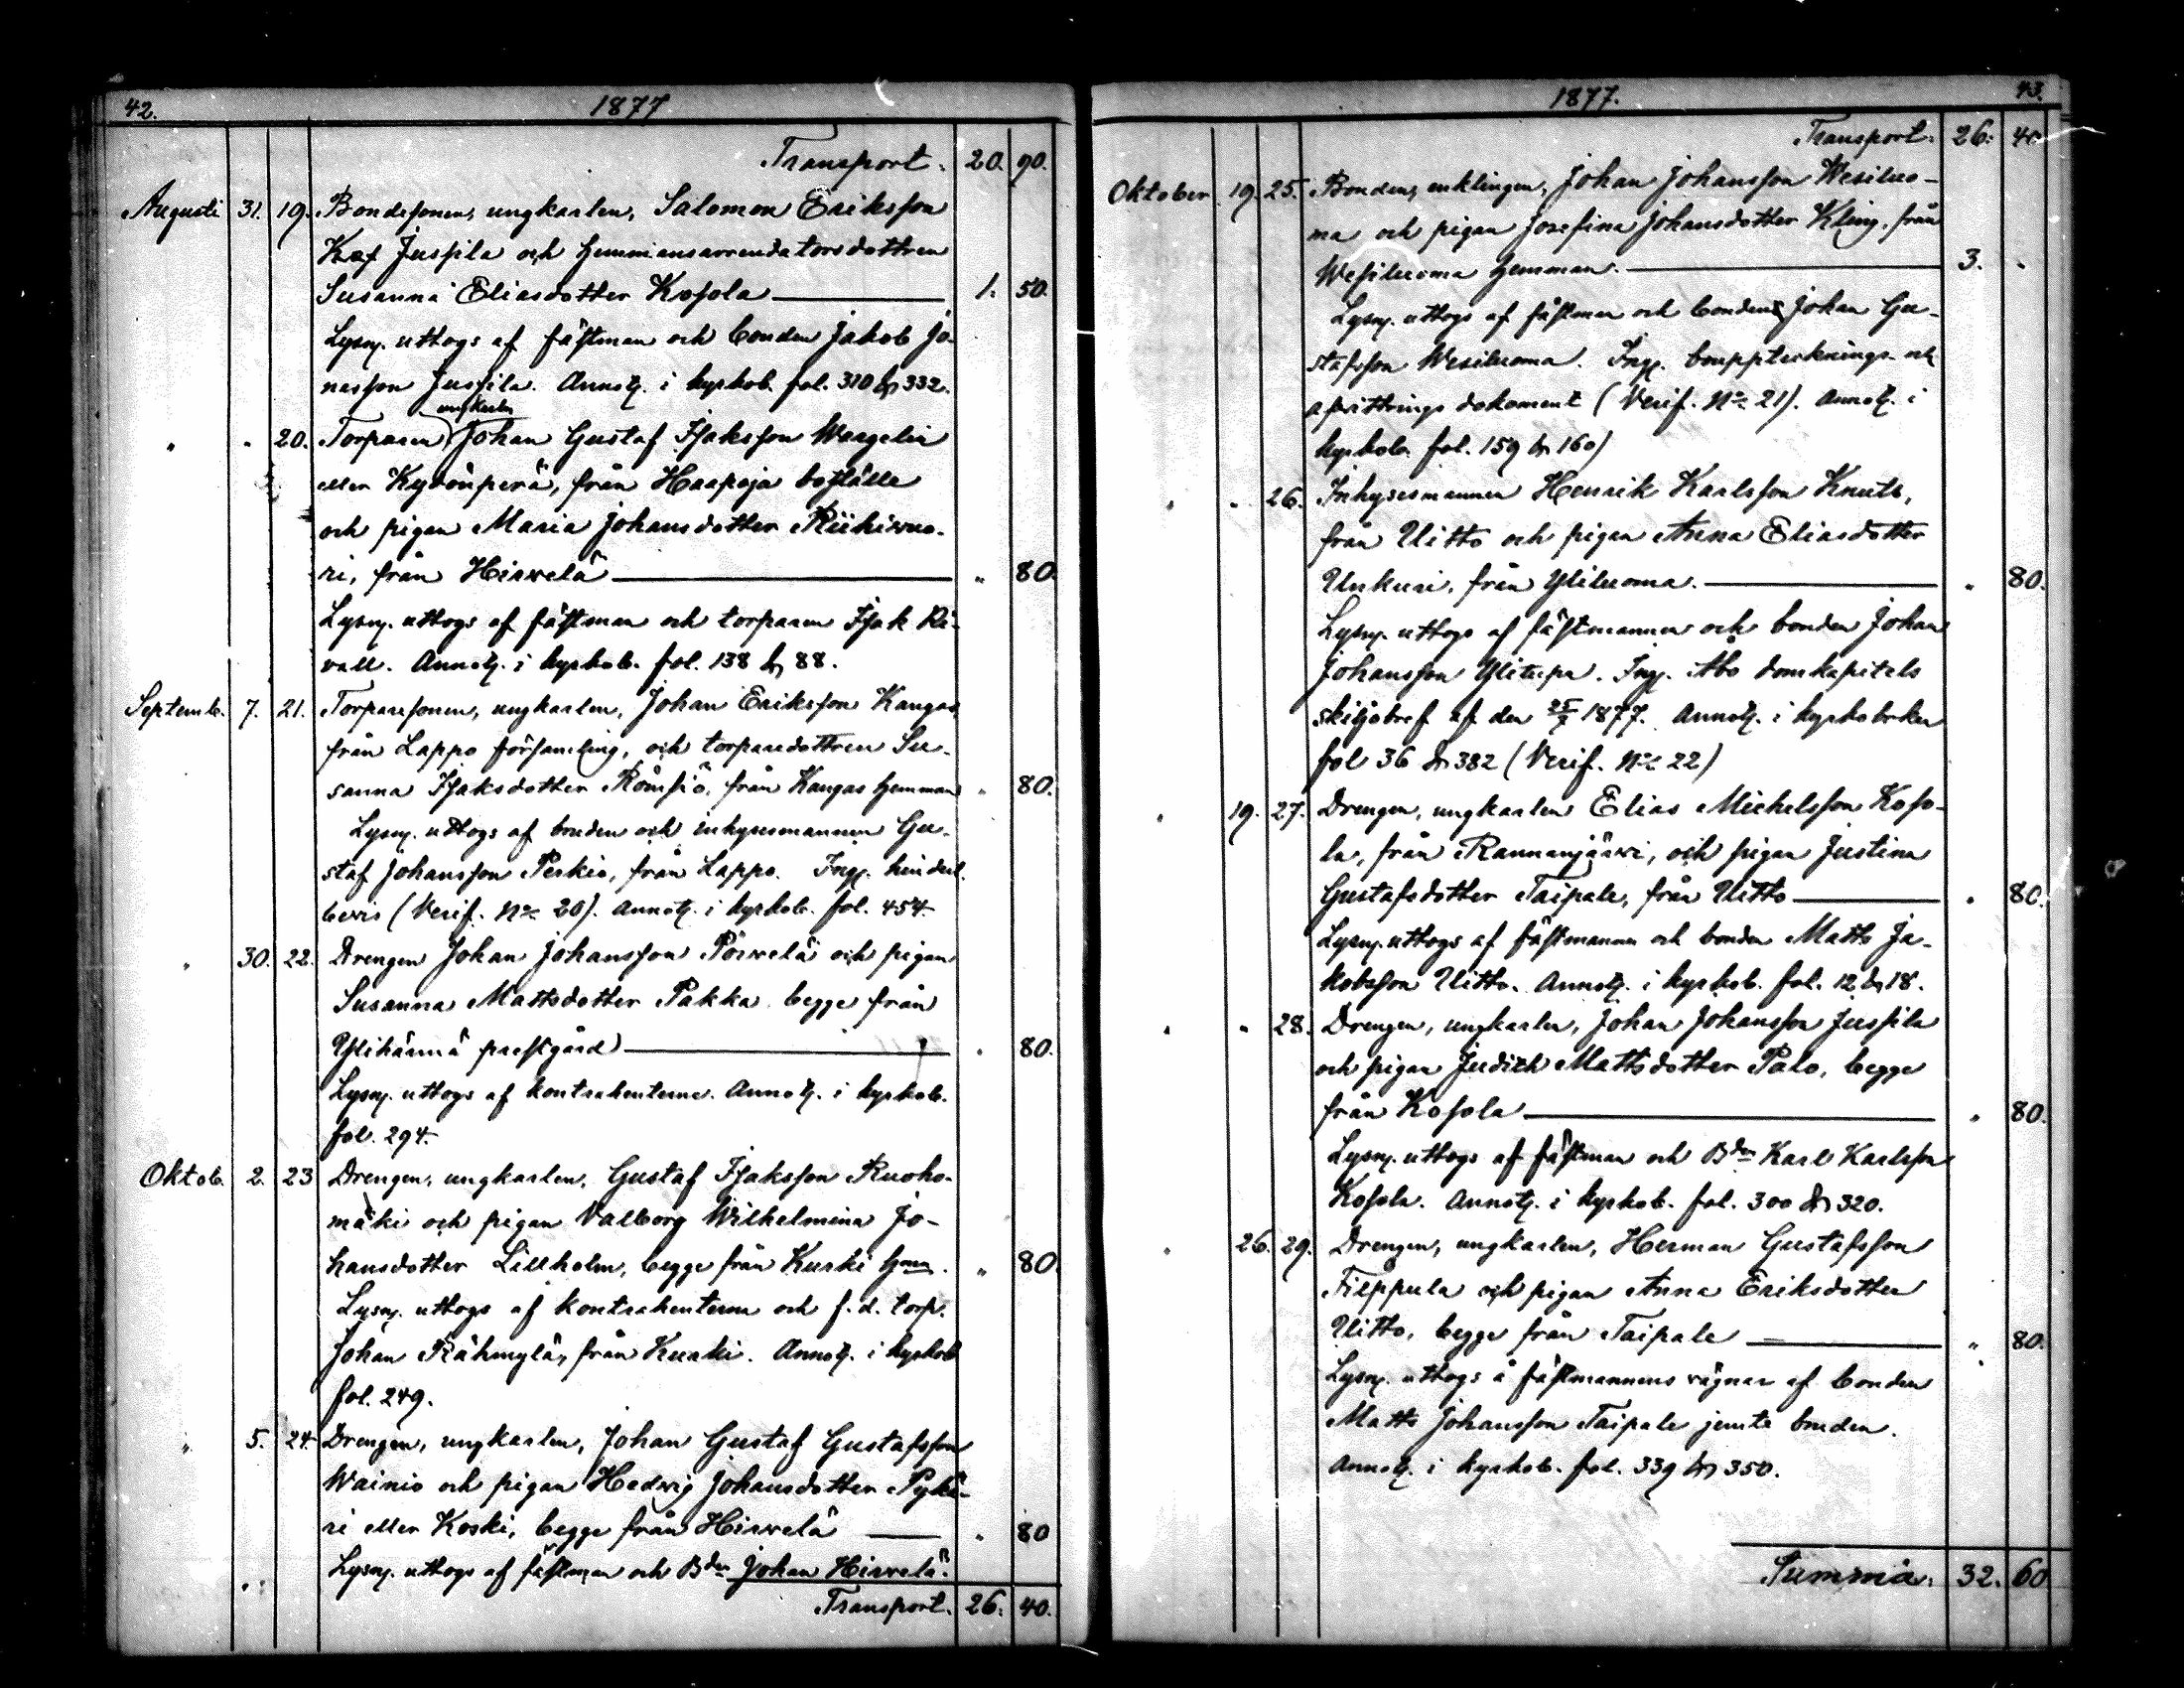 42.
1877
Transport. 20. 90.
Augusti 31. 19. Bondesonen, ungkarlen, Salomon Eriksson
Jussila och hemmansarrendatorsdottren
Susanna Eliasdotter Kosola 1. 50.
Lysn. uttogs af fästman och bonden Jakob Jo-
nasson Jussila. Annot. i kyrkob. fol. 310 & 332.
ungkarlen
" " 20. Torparen Johan Gustaf Isaksson Wargelin
eller Kyrönperä, från Haapoja boställe
och pigan Maria Johansdotter Riihiwuo-
ri, från Hirwelä " 80.
Lysn. uttogs af fästman och torparen Isak Ri-
vall. Annot. i kyrkob. fol. 138 & 88.
Septemb. 7. 21. Torparesonen, ungkarlen, Johan Eriksson Kangas,
från Lappo församling, och torparedottren Su-
sanna Isaksdotter från Kangas hemman " 80.
Lysn. uttogs af bruden och inhysesmannen Gu-
staf Johansson Perkiö, från Lappo. Ing. hinderl.
bevis (Verif. No 20). Annot. i kyrkob. fol. 454.
" 30. 22. Drengen Johan Johansson Pörwelä och pigan
Susanna Mattsdotter Pakka begge från
Ylihärmä prestgård " 80.
Lysn. uttogs af kontrahenterne. Annot. i kyrkob.
fol. 294.
Oktob. 2. 23 Drengen, ungkarlen, Gustaf Isaksson Ruoho-
mäki och pigan Valborg Wilhelmina Jo-
hansdotter Lillholm, begge från Kuski hmn. " 80.
Lysn. uttogs af kontrahenterne och f. d. torp.
Johan Rähmylä, från Kuski. Annot. i kyrkob
fol. 249.
" 5. 24. Drengen, ungkarlen, Johan Gustaf Gustafsson
Wainio och pigan Hedvig Johansdotter Pykä-
ri eller Koski, begge från Hirwelä " 80
Lysn. uttogs af fästman och Bden Johan Hirwelä.
Transport. 26. 40.
1877.
43.
Transport. 26. 40.
Oktober 19. 25. Bonden, enklingen, Johan Johansson Wesiluo-
ma och pigan Josefina Johansdotter Kling, från
Wesiluoma hemman. 3. "
Lysn. uttogs af fästman och bonden Johan Gu-
stafsson Wesiluoma. Ing. bouppteknings- och
afwittrings dokument (Verif. No 21). Annot. i
kyrkob. fol. 159 & 160)
" " 26. Inhysesmannen Henrik Karlsson Knuts,
från Uitto och pigan Anna Eliasdotter
Unkuri, från Yliluoma. " 80.
Lysn. uttogs af fästmannen och bonden Johan
Johansson Ylitupa. Ing. Åbo domkapitels
skiljobref af den 1877. Annot. i kyrkoboken
fol 36 & 382 (Verif. No 22)
" 19. 27. Drengen, ungkarlen Elias Michelsson Koso-
la, från Rannanjärwi, och pigan Justina
Gustafsdotter Taipale, från Uitto " 80.
Lysn. uttogs af fästmannen och bonden Matts Ja-
kobsson Uitto. Annot. i kyrkob. fol. 12 & 18.
" " 28. Drengen, ungkarlen, Johan Johansson Jussila
och pigan Judith Mattsdotter Palo, begge
från Kosola " 80.
Lysn. uttogs af fästman och Bden Karl Karlsson
Kosola. Annot. i kyrkob. fol. 300 & 320.
" 26. 29. Drengen, ungkarlen, Herman Gustafsson
Filppula och pigan Anna Eriksdotter
Uitto, begge från Taipale " 80.
Lysn. uttogs å fästmannens vägnar af bonden
Matts Johansson Taipale jemte bruden.
Annot. i kyrkob. fol. 339 & 350.
Summa. 32. 60